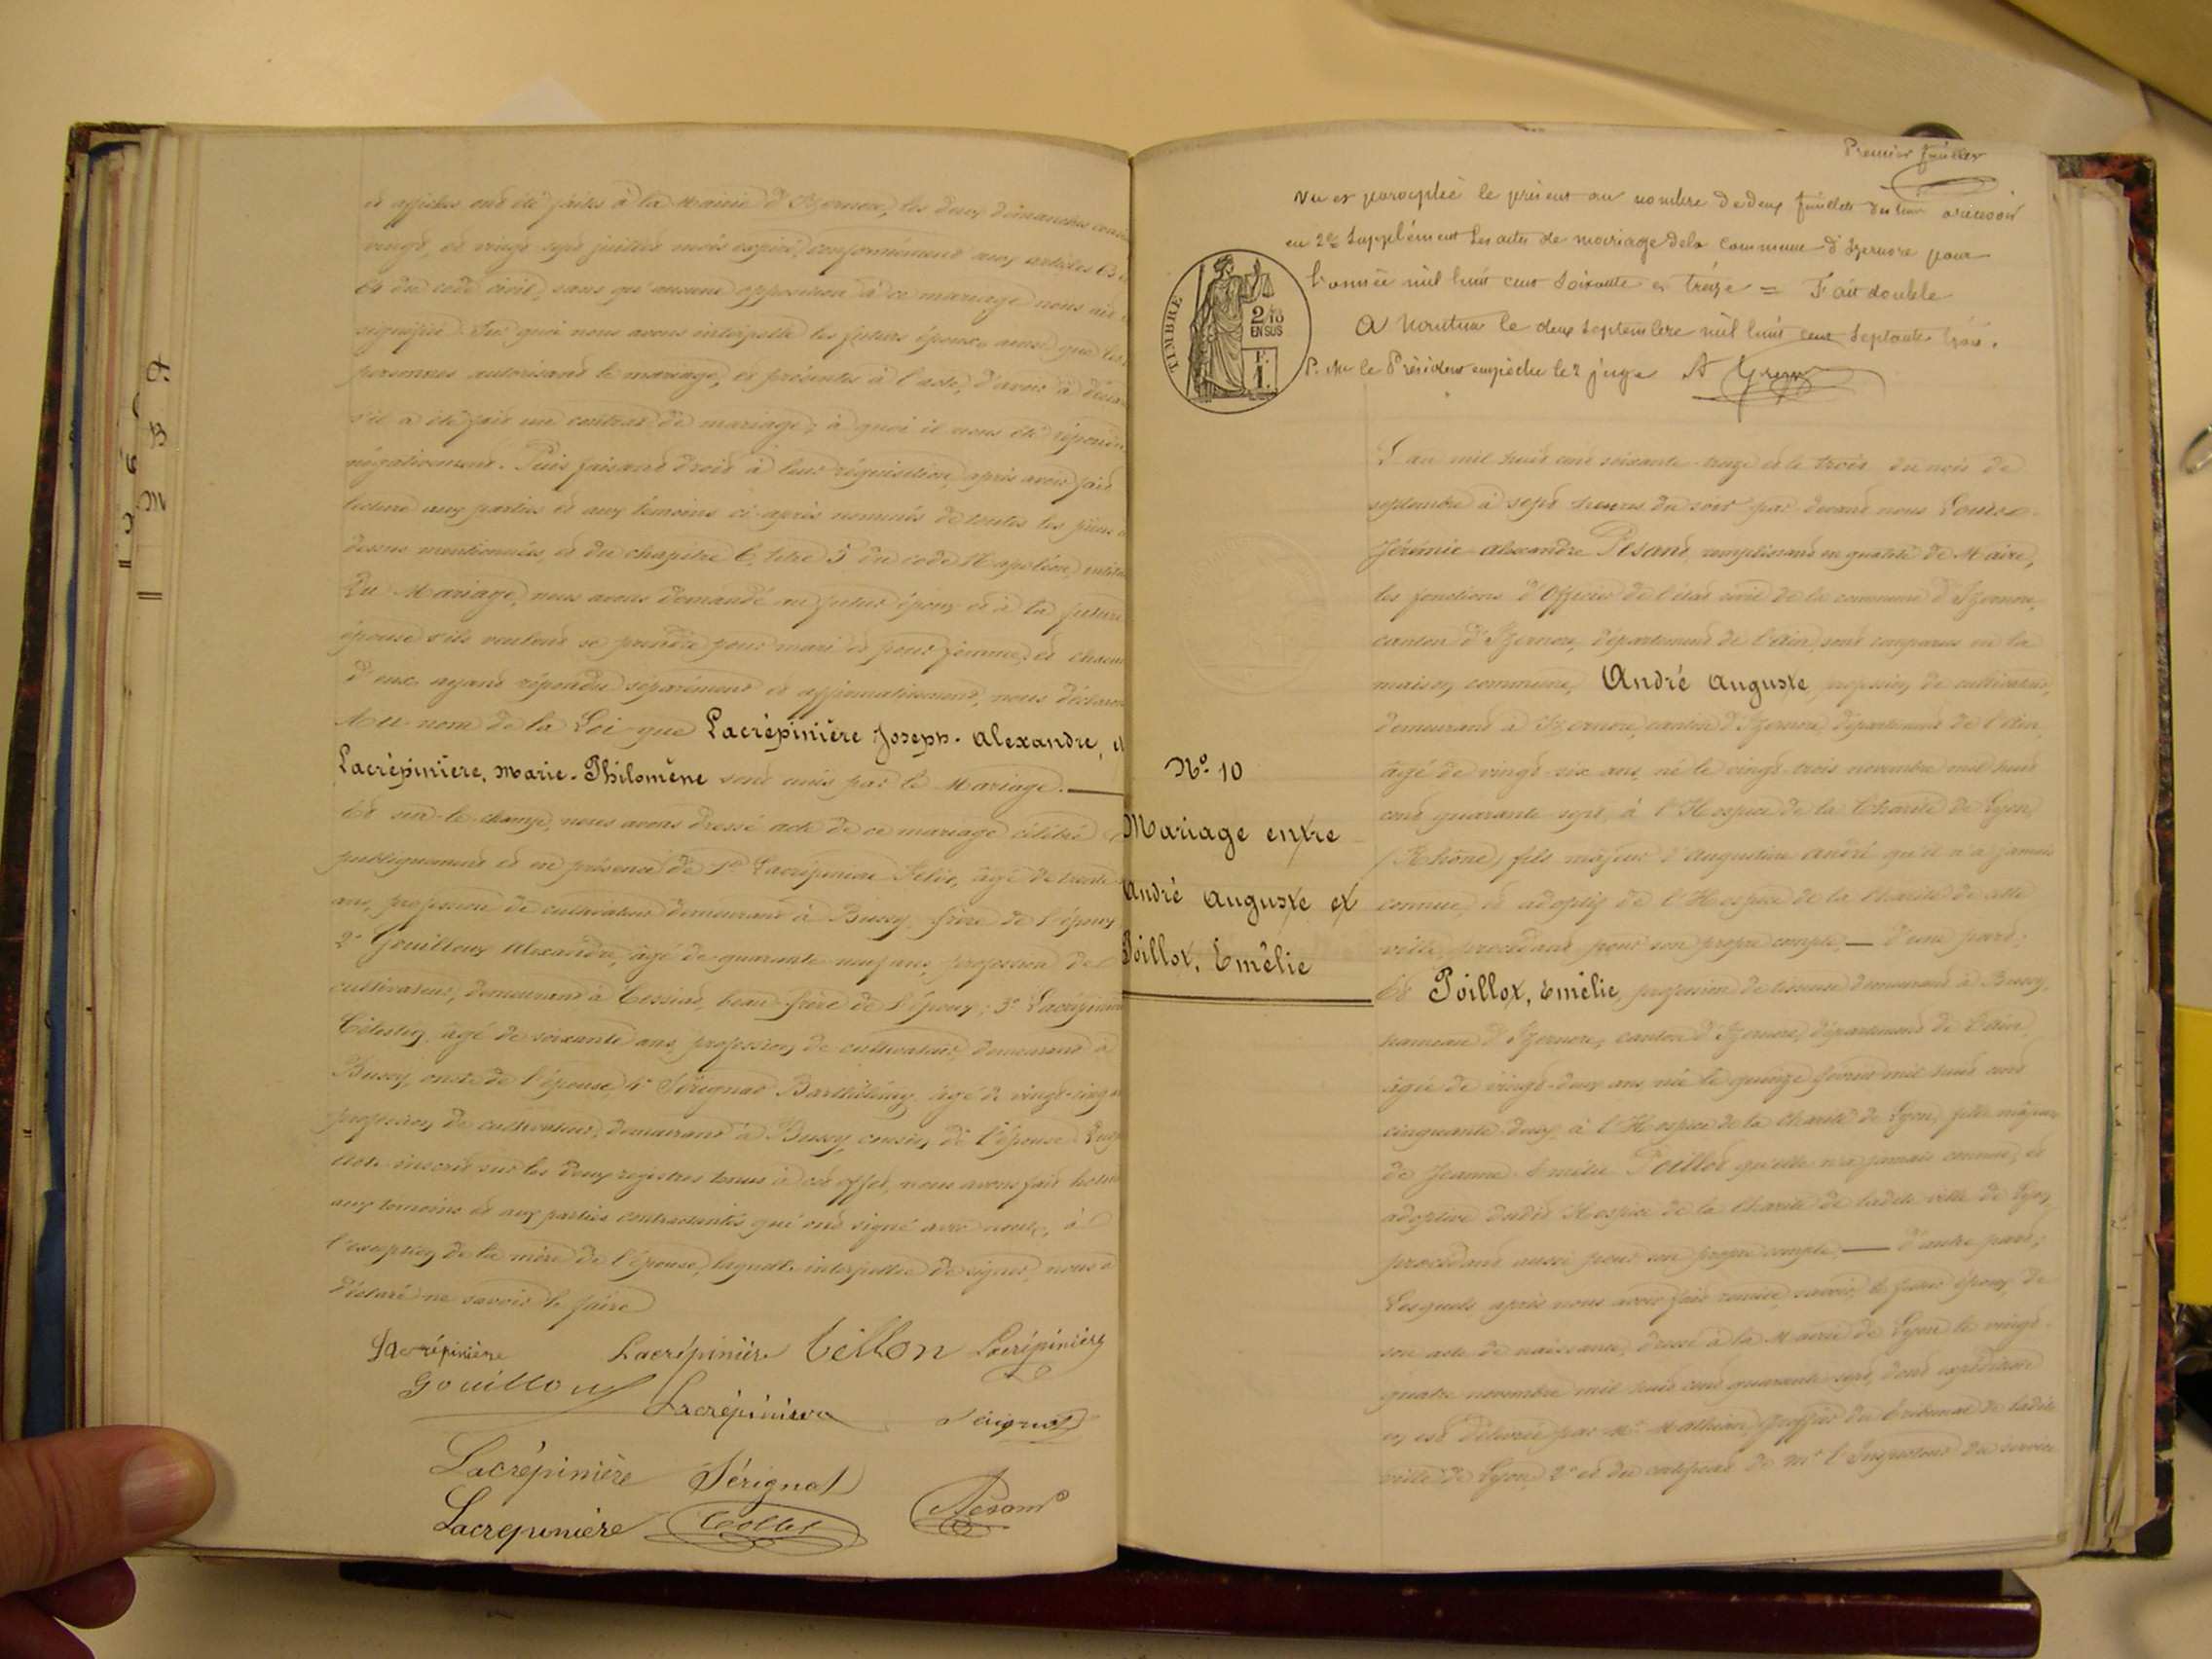 et affiches ont été faites à la Mairie d'Izernore, les deux dimanches
vingt, et vingt sept juillet mois expiré, conformément aux articles 63
64 du code civil, sans qu'aucune opposition à ce mariage nous ait
signifiée. Sur quoi nous avons interpellé les futurs époux, ainsi que les
personnes autorisant le mariage, et présentes à l'acte, d'avoir à
s'il a été fait un contrat de mariage, à quoi il nous été
négativement. Puis faisant droit à leur réquisition, après avoir fait
lecture aux parties et aux témoins ci-après nommés de toutes les pièces
dessus mentionnées, et du chapitre 6, titre 5 du code Napoléon,
Du Mariage, nous avons demandé au futur époux et à la future
épouse s'ils veulent se prendre pour mari et pour femme, et chacun
d'eux ayant répondu séparément et affirmativement, nous déclarons
Au nom de la Loi que Lacrépinière Joseph-Alexandre, et
Lacrépinière, Marie-Philomène sont unis par le Mariage.
Et sur-le-champ, nous avons dressé acte de ce mariage célébré
publiquement et en présence de 1° Lacrépinière Félix, âgé de trente
ans, profession de cultivateur demeurant à Bussy, frère de l'époux
2° Gouilloux Alexandre, âgé de quarante neuf ans, profession de
cultivateur, demeurant à Cessiat, beau-frère de l'époux; 3° Lacrépinière
Célestin, âgé de soixante ans, profession de cultivateur, demeurant à
Bussy, oncle de l'épouse, 4° Sérignat Barthélemy, âgé de vingt-cinq
profession de cultivateur, demeurant à Bussy, cousin de l'épouse.
Acte inscrit sur les deux registres tenus à cet effet, nous avons fait lecture
aux témoins et aux parties contractantes qui ont signé avec nous, à
l'exception de la mère de l'épouse, laquelle interpellée de signer, nous a
déclaré ne savoir le faire
Lacrépinière Lacrépinière Tillon Lacrépinière
Gouilloux Lacrépinière Sérignat
Lacrépinière Sérignat
Lacrépinière Pesant
Premier feuillet
Vu et paraphé le présent au nombre de deux feuillets
en 2e Supplément les actes de mariage de la commune d'Izernore pour
l'année mil huit cent soixante et treize = Fait double
A Nantua le deux septembre mil huit cent septante trois.
P. Mr le Président empêché le juge
TIMBRE
2/10
EN SUS
F.
1.
L'an mil huit cent soixante-treize et le trois du mois de
septembre à sept heures du soir par devant nous Louis
Jérémie Alexandre Pesant, remplissant en qualité de Maire,
les fonctions d'Officier de l'état civil de la commune d'Izernore,
canton d'Izernore, département de l'Ain, sont comparus en la
maison commune, André Auguste, profession de cultivateur,
demeurant à Izernore, canton d'Izernore, département de l'Ain,
âgé de vingt-six ans, né le vingt-trois novembre mil huit
cent quarante sept, à l'Hospice de la Charité de Lyon,
(Rhône) fils majeur d'Augustine André, qu'il n'a jamais
connue, et adoptif de l'Hospice de la Charité de cette
ville, procédant pour son propre compte — d'une part;
Et Poillot, Emélie, profession de tisseuse demeurant à Bussy,
hameau d'Izernore, canton d'Izernore, département de l'Ain,
âgée de vingt-deux ans, née le quinze février mil huit cent
cinquante-deux à l'Hospice de la Charité de Lyon, fille majeure
de Jeanne Emélie Poillot qu'elle n'a jamais connue, et
adoptive dudit Hospice de la Charité de ladite ville de Lyon,
procédant aussi pour son propre compte, — d'autre part;
Lesquels après nous avoir fait remise, savoir, le futur époux, de
son acte de naissance, dressé à la Mairie de Lyon le vingt-
quatre novembre mil huit cent quarante sept, dont expédition
en est délivrée par Mr Mathian, greffier du tribunal de ladite
ville de Lyon, 2° et du certificat de Mr l'Inspecteur du service
No 10
Mariage entre
André Auguste et
Poillot, Emélie